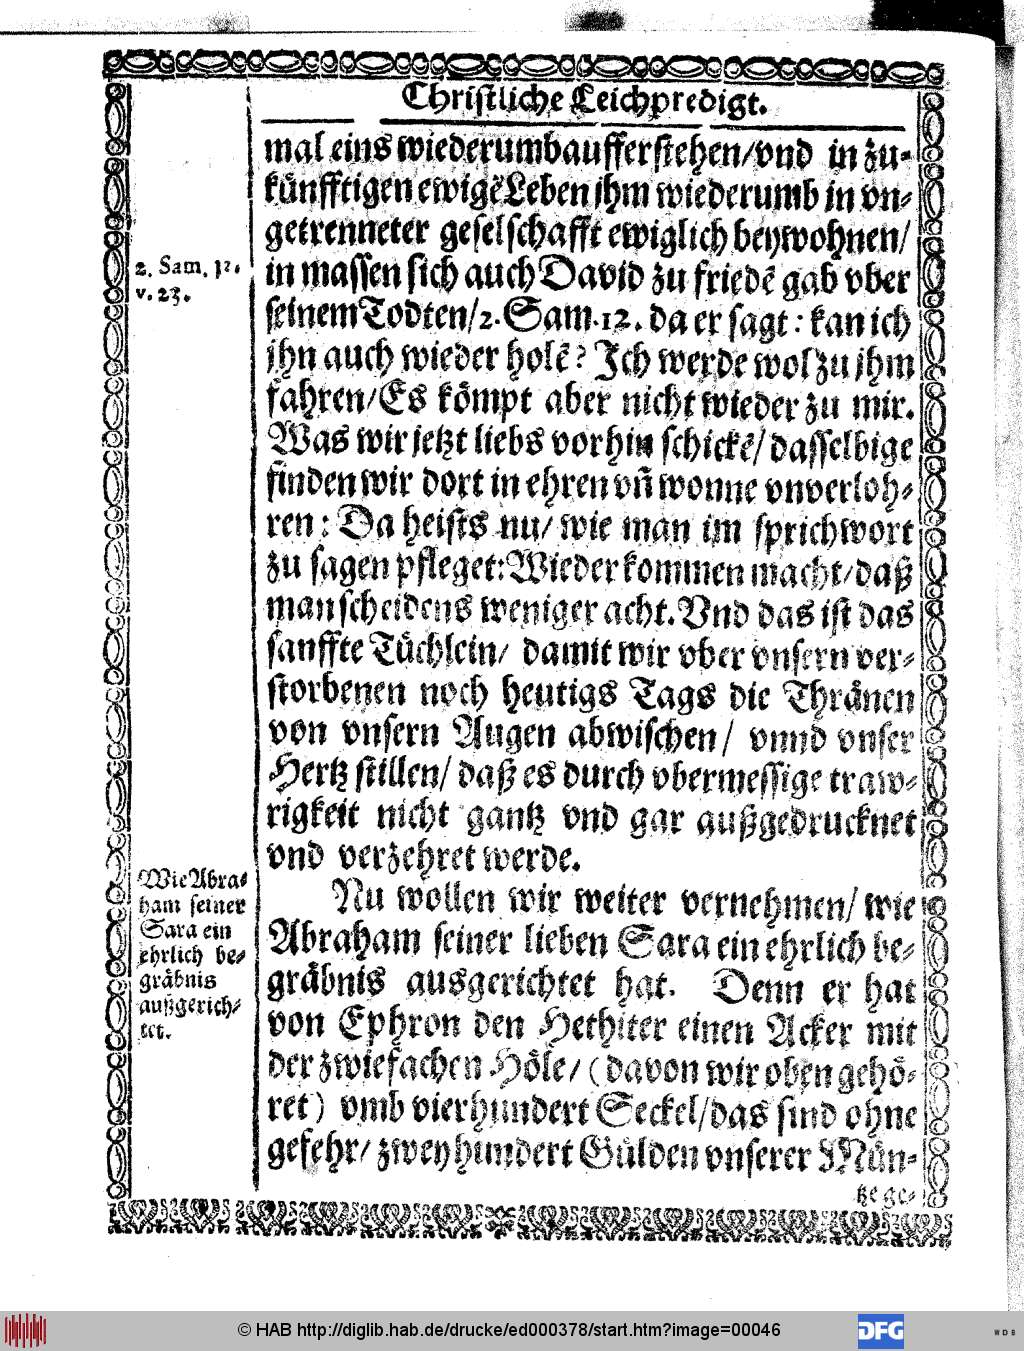 Christliche Leichpredigt.
mal eins wiederumb aufferstehen/vnd in zu-
künfftigen ewigē Leben jhm wiederumb in vn-
getrenneter geselschafft ewiglich beywohnen/
in massen sich auch David zu friedē gab vber
seinem Todten/2. Sam. 12. da er sagt: kan ich
jhn auch wieder holē? Ich werde wol zu jhm
fahren/Es kömpt aber nicht wieder zu mir.
Was wir jetzt liebs vorhin schickē/ dasselbige
finden wir dort in ehren vñ wonne vnverloh-
ren: Da heists nu/ wie man im sprichwort
zu sagen pfleget: Wiederkommen macht/daß
man scheidens weniger acht. Vnd das ist das
sanffte Tüchlein/ damit wir vber vnsern ver-
storbenen noch heutigs Tags die Thränen
von vnsern Augen abwischen/ vnnd vnser
Hertz stillen/ daß es durch vbermessige traw-
rigkeit nicht gantz vnd gar außgedrucknet
vnd verzehret werde.
Nu wollen wir weiter vernehmen/ wie
Abraham seiner lieben Sara ein ehrlich be-
gräbnis ausgerichtet hat. Denn er hat
von Ephron den Hethiter einen Acker mit
der zwiefachen Höle/ (davon wir oben gehö-
ret) vmb vierhundert Seckel/das sind ohne
gefehr/ zwey hundert Gülden vnserer Mün-
tze ge-
2. Sam. 12.
v. 23.
Wie Abra-
ham seiner
Sara ein
ehrlich be-
gräbnis
außgerich-
tet.
© HAB http://diglib.hab.de/drucke/ed000378/start.htm?image=00046
DFG
WDB